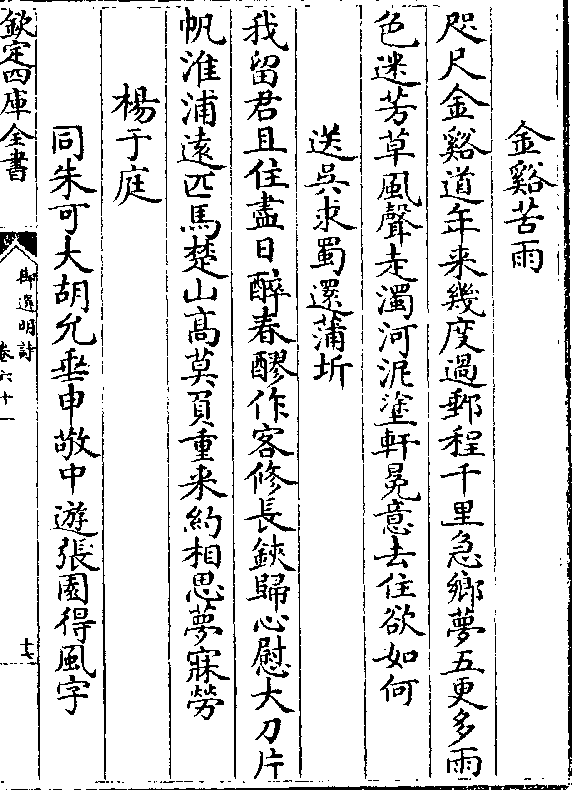 金谿苦雨
咫尺金谿道年来幾度過郵程千里急鄉夢五更多雨
色迷芳草風聲走濁河泥塗軒冕意去住欲如何
送吳求蜀還蒲圻
我留君且住盡日醉春醪作客修長鋏歸心慰大刀片
帆淮浦遠匹馬楚山髙莫負重来約相思夢寐勞
楊于庭
同朱可大胡允垂申敬中遊張園得風字
欽定四庫全書
御選明詩
卷六十一
十六